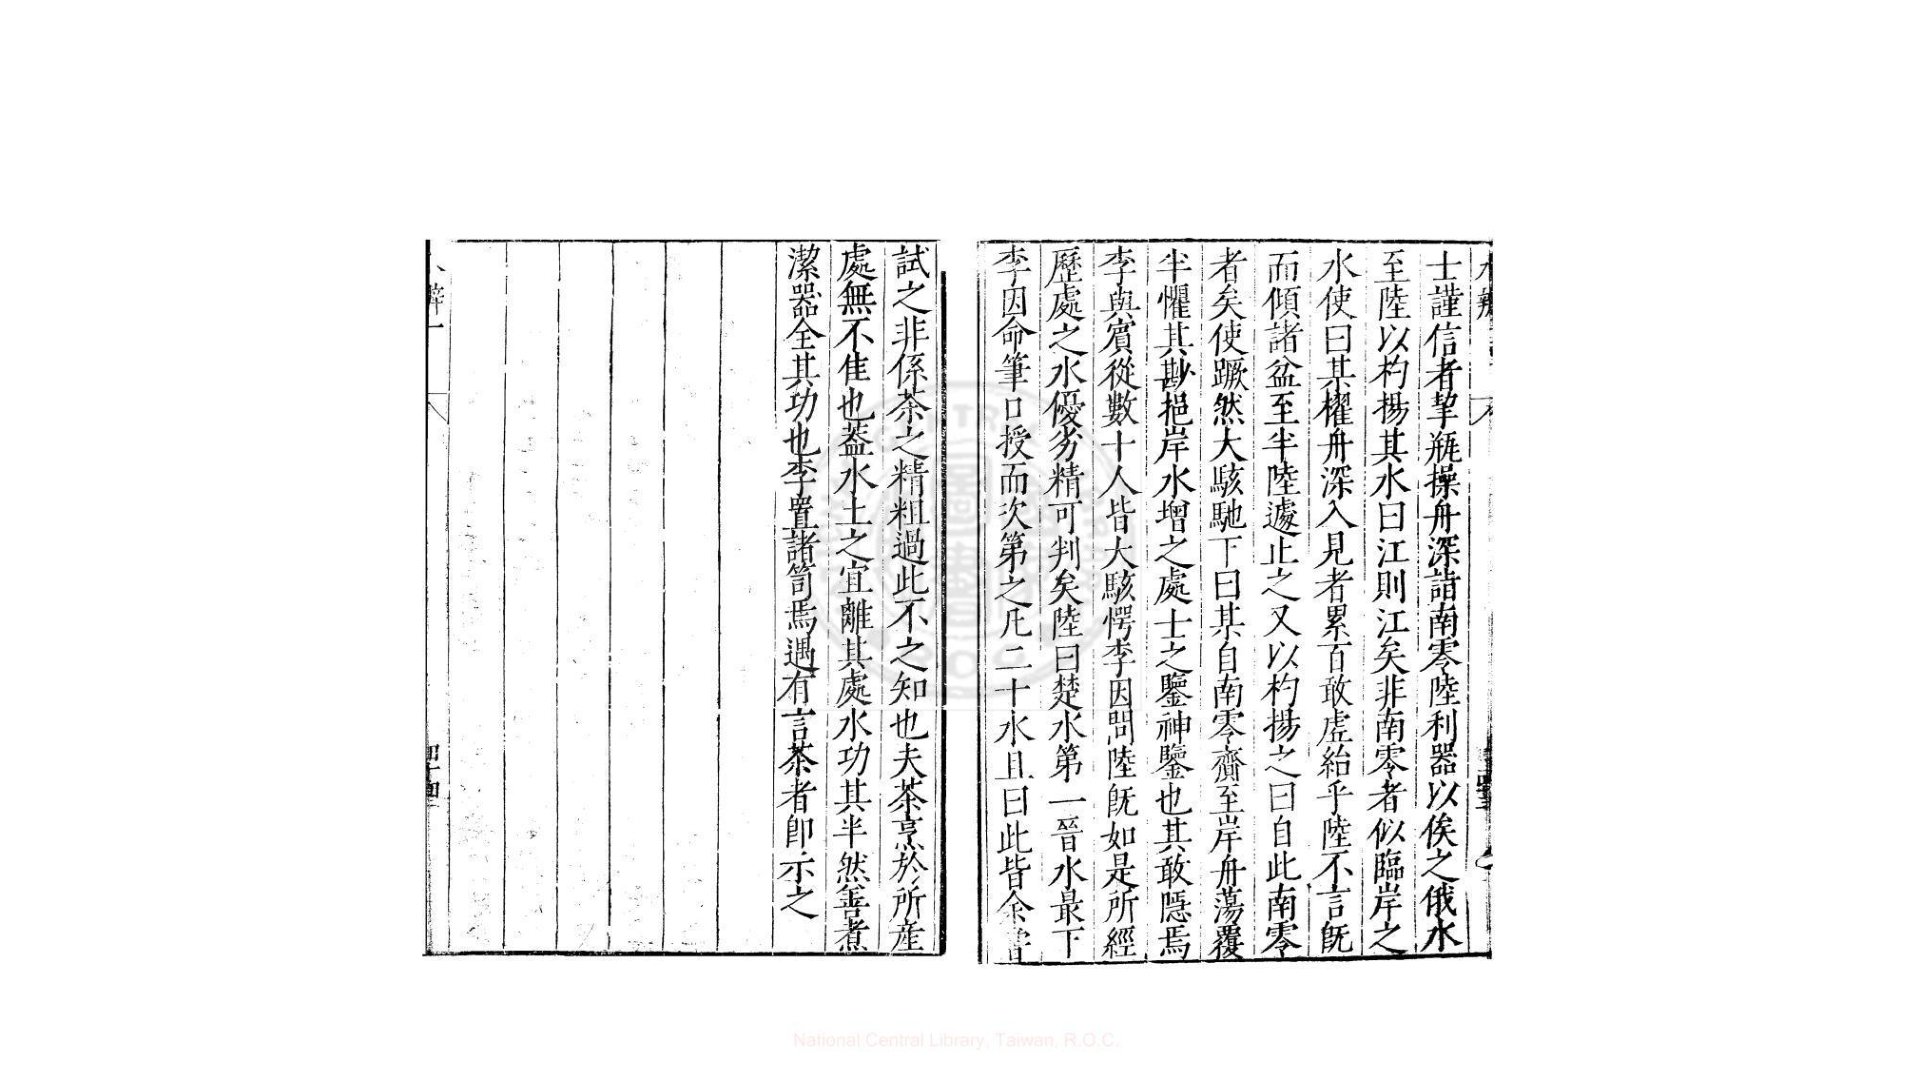 士謹信者挈瓶操舟深詣南零陸利器以俟之俄水
至陸以杓揚其水曰江則江矣非南零者似臨岸之
水使曰某櫂舟深入見者累百敢虛紿乎陸不言旣
而傾諸盆至半陸遽止之又以杓揚之曰自此南零
者矣使蹶然大駭馳下曰某自南零齎至岸舟蕩覆
半懼其尠挹岸水增之處士之鑒神鑒也其敢隱焉
李與賓從數十人皆大駭愕李因問陸旣如是所經
歷處之水優劣精可判矣陸曰楚水第一晉水最下
李因命筆口授而次第之凡二十水且曰此皆余嘗
試之非係茶之精粗過此不之知也夫茶烹於所產
處無不佳也蓋水土之宜離其處水功其半然善煮
潔器全其功也李置諸笥焉遇有言茶者卽示之
National Central Library, Taiwan, R.O.C.